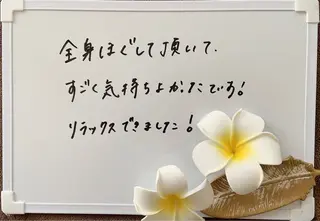 全身ほぐして頂いて、
すごく気持ちよかったです!
リラックスできました!